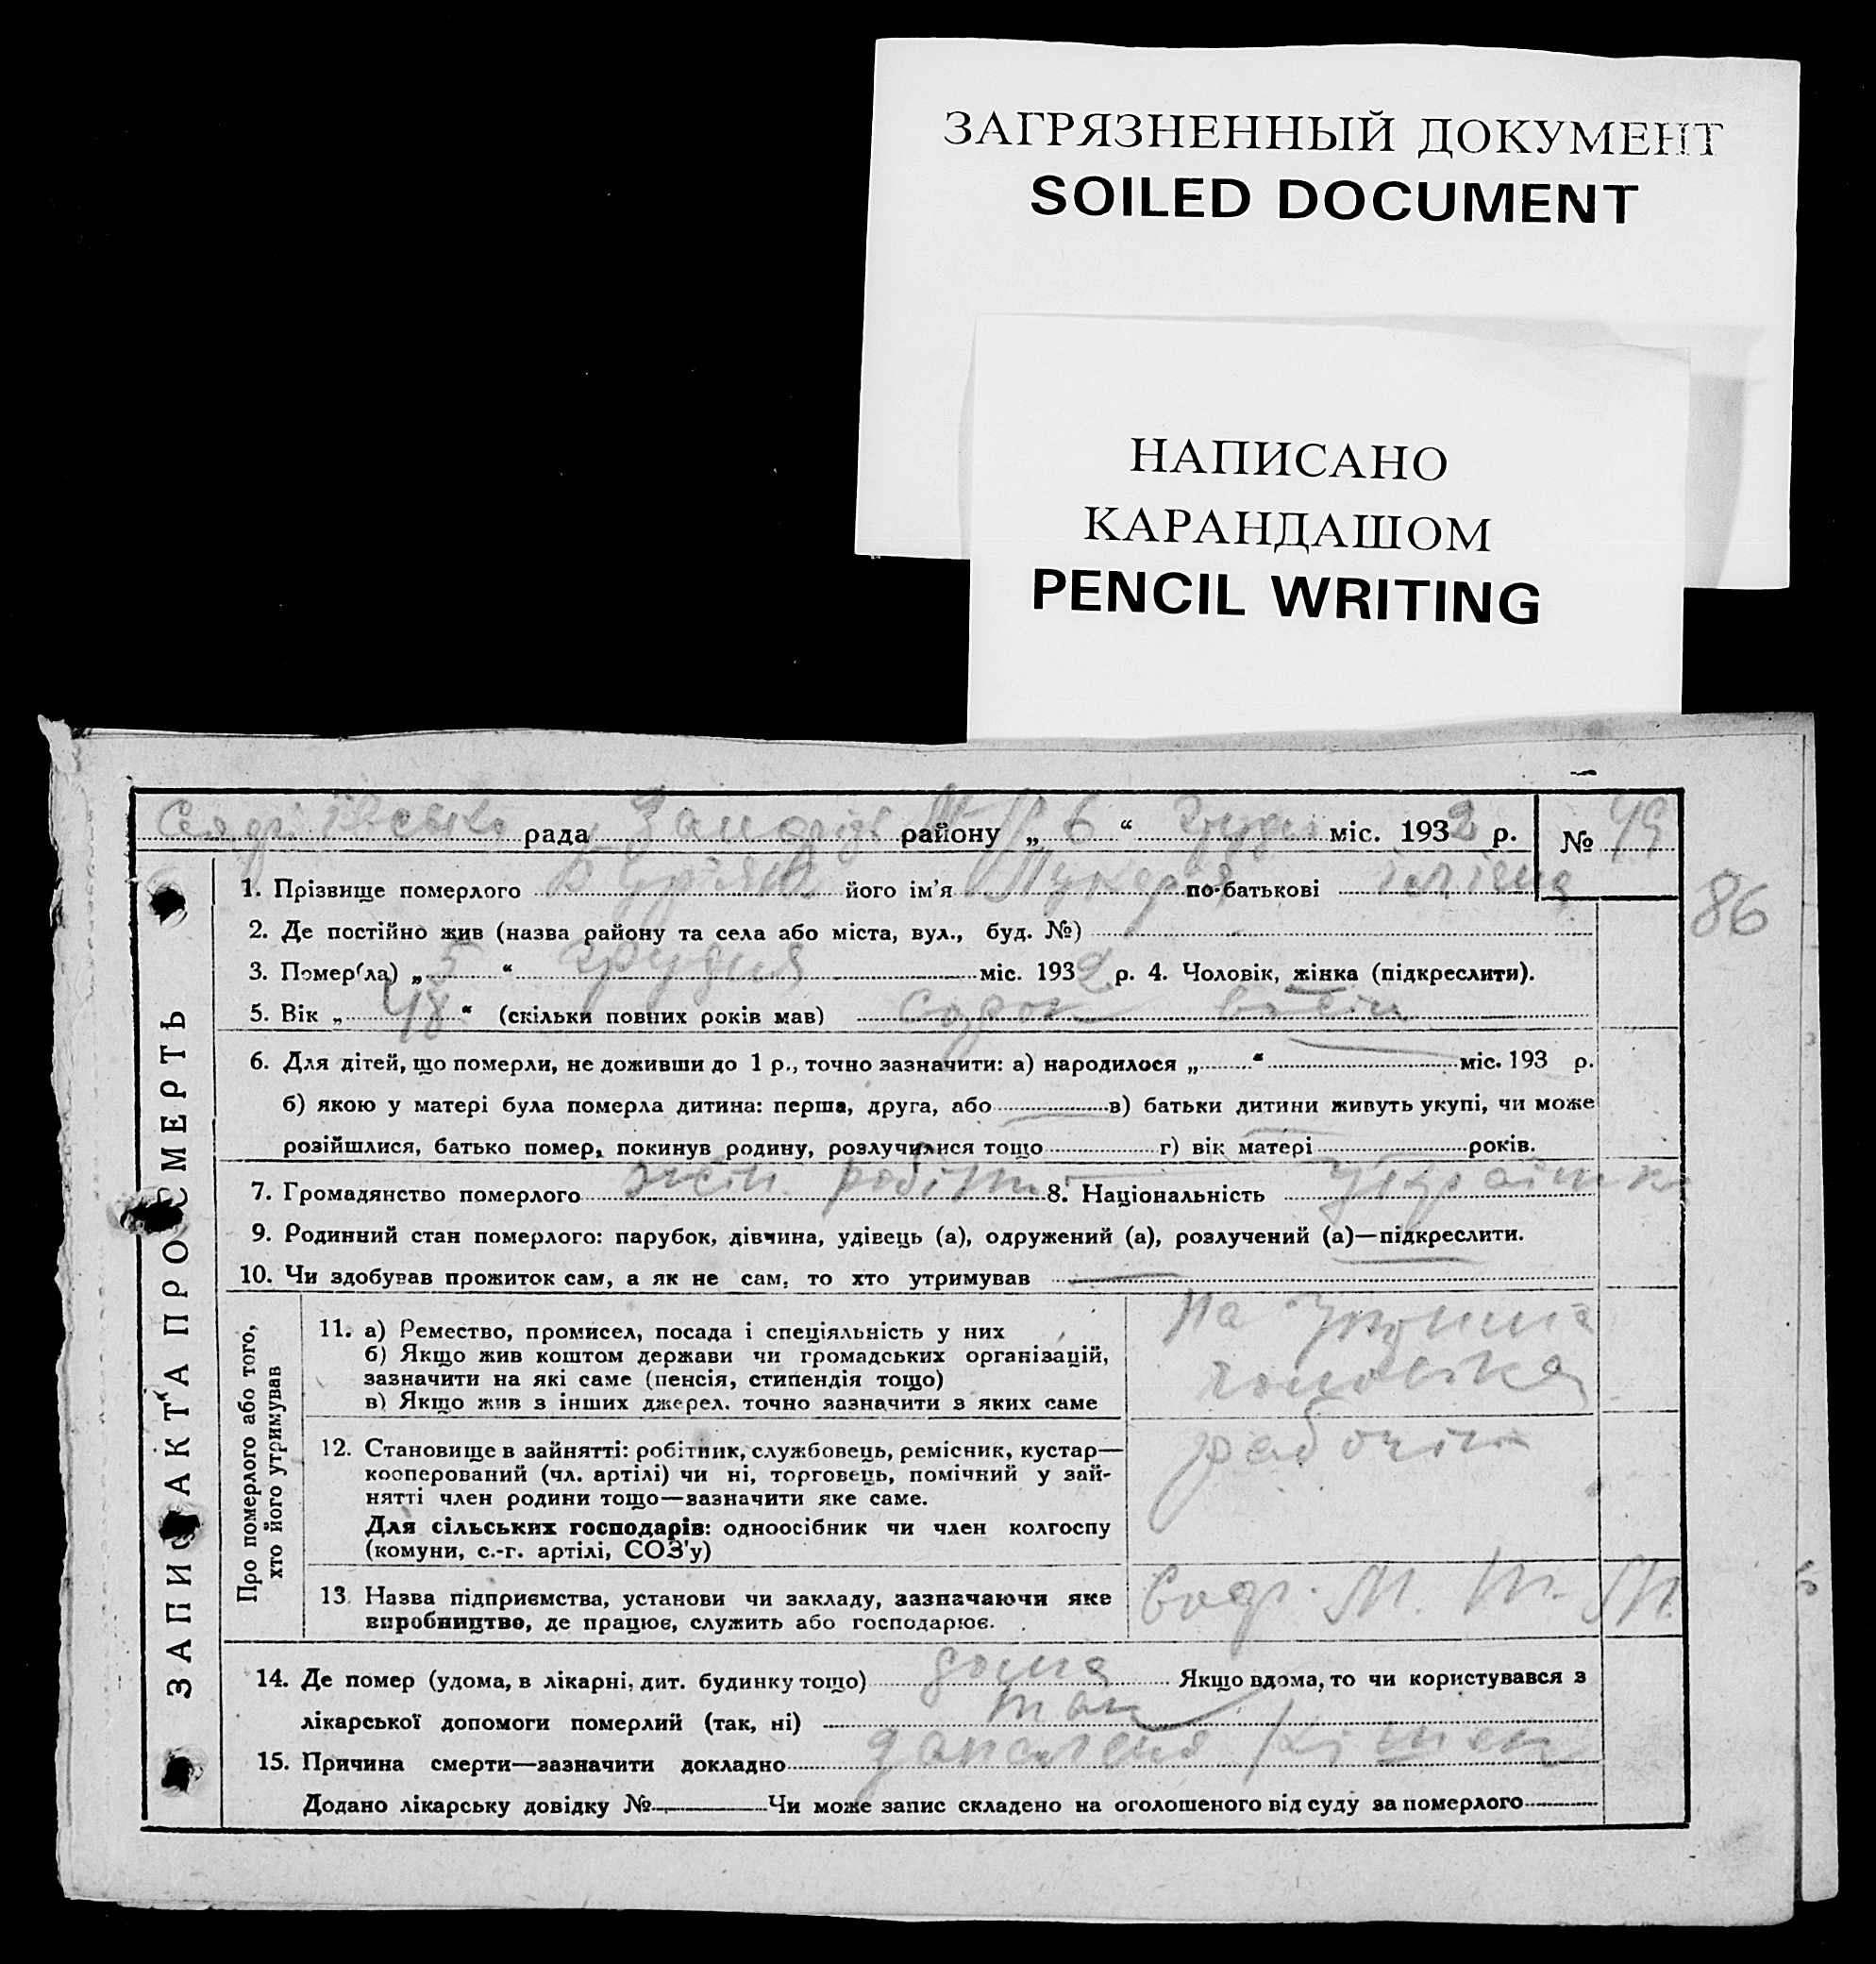 ЗАГРЯЗНЕННЫЙ ДОКУМЕНТ
SOILED DOCUMENT
НАПИСАНО
КАРАНДАШОМ
PENCIL WRITING
рада района району „ 6 “ міс. 1932 р. № 49
86
1. Прізвище померлого його ім’я по-батькові
2. Де постійно жив (назва району та села або міста, вул., буд. №)
3. Помер(ла) „ 5 “ грудня міс. 1932 р. 4. Чоловік, жінка (підкреслити).
5. Вік „ 48 “ (скільки повних років мав) сорок вісім
6. Для дітей, що померли, не доживши до 1 р., точно зазначити: а) народилося „ “ міс. 193 р.
б) якою у матері була померла дитина: перша, друга, або в) батьки дитини живуть укупі, чи може
розійшлися, батько помер, покинув родину, розлучилися тощо г) вік матері років.
7. Громадянство померлого 8. Національність Українка
9. Родинний стан померлого: парубок, дівчина, удівець (а), одружений (а), розлучений (а)—підкреслити.
10. Чи здобував прожиток сам, а як не сам, то хто утримував
ЗАПИС АКТА ПРО СМЕРТЬ
Про померлого або того,
хто його утримував
11. а) Ремество, промисел, посада і спеціяльність у них
б) Якщо жив коштом держави чи громадських організацій,
зазначити на які саме (пенсія, стипендія тощо)
в) Якщо жив з інших джерел, точно зазначити з яких саме
На
чоловіка
12. Становище в зайнятті: робітник, службовець, ремісник, кустар—
кооперований (чл. артілі) чи ні, торговець, помічний у зай-
нятті член родини тощо—зазначити яке саме.
Для сільських господарів: одноосібник чи член колгоспу
(комуни, с.-г. артілі, СОЗ'у)
13. Назва підприємства, установи чи закладу, зазначаючи яке
виробництво, де працює, служить або господарює.
14. Де помер (удома, в лікарні, дит. будинку тощо) дома Якщо вдома, то чи користувався з
лікарської допомоги померлий (так, ні) так
15. Причина смерти—зазначити докладно
Додано лікарську довідку № Чи може запис складено на оголошеного від суду за померлого